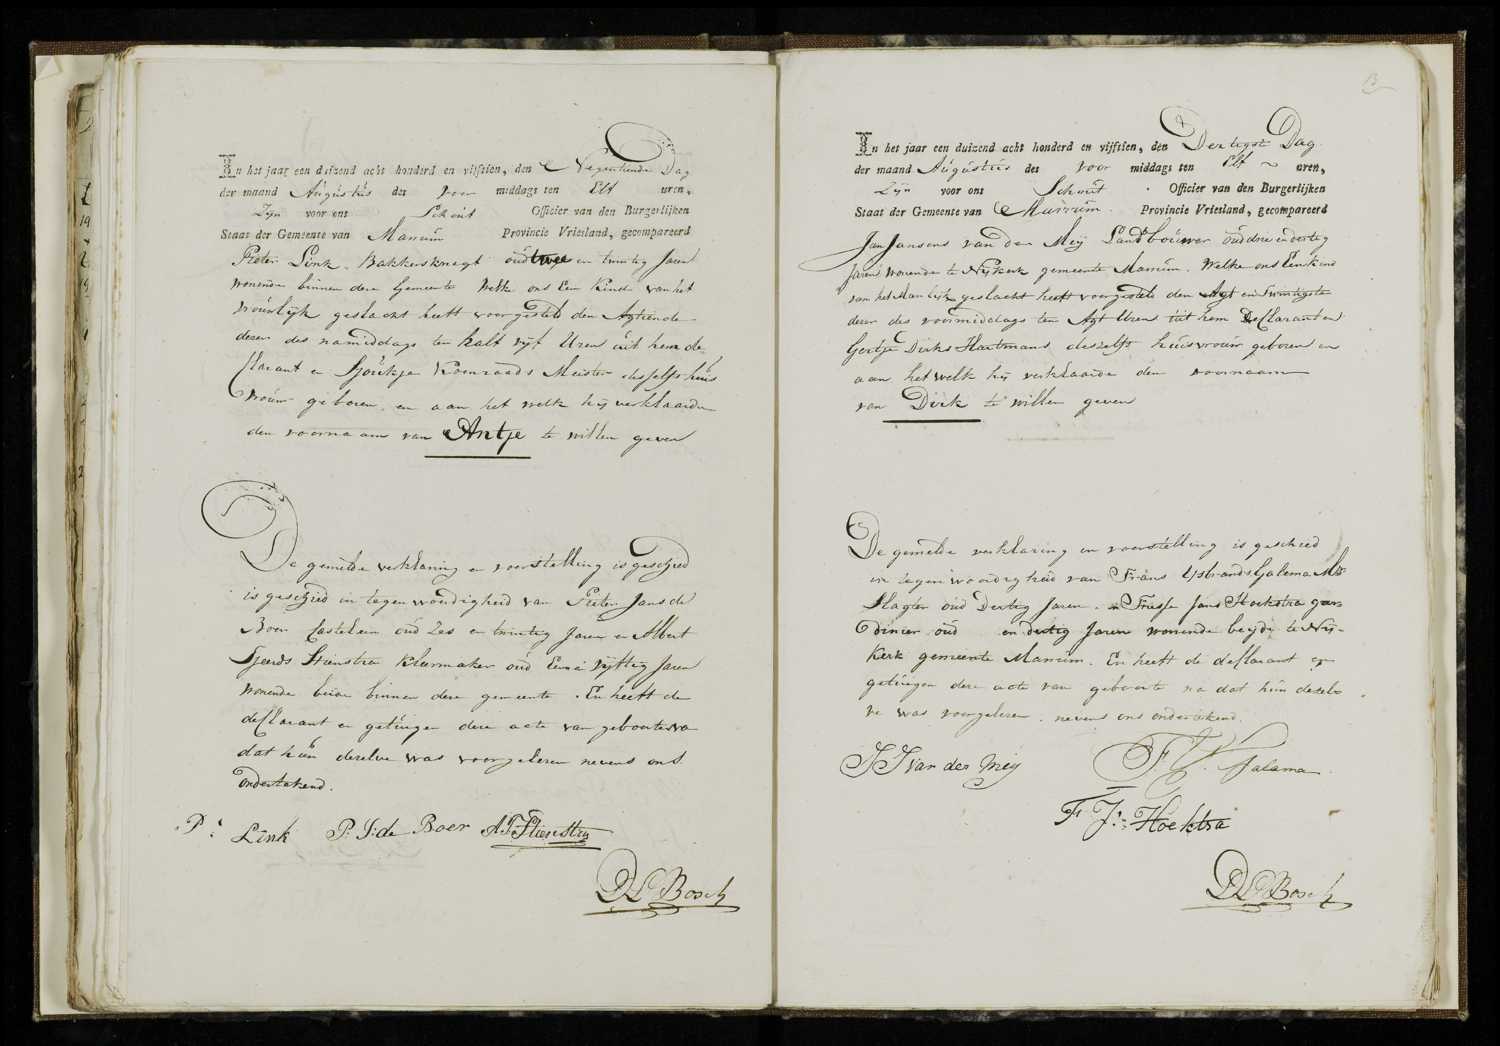 In het jaar een duizend acht honderd en vijftien, den Negentiende Dag
der maand Augustus des voor middags ten Elf uren,
Zijn voor ons Schout Officier van den Burgerlijken
Staat der Gemeente van Marrum Provincie Vriesland, gecompareerd
Pieter Link, Bakkersknegt oud twee en twintig Jaren
wonende binnen dese Gemeente Welke ons Een Kind van het
vrouwlijk geslacht heeft voorgesteld den Agtiende
deser des namiddags ten half vijf Uren uit hem de-
clarant en Sjoukje Koenraads Meister desselfs huis
vrouw geboren, en aan het welk hij verklaarde
den voornaam van Antje te willen geven
De gemelde verklaring en voorstelling is geschied
is geschied in tegenwoordigheid van Pieter Jans de
Boer Castelein oud Zes en twintig Jaren en Albert
Tjeerds Stienstra Kleermaker oud Een i vijftig Jaren
wonende beide binnen dese gemeente. En heeft de
declarant en getuigen dese acte van geboorte na
dat hun deselve was voorgelesen nevens ons
ondertekend.
Pr Link P: J: de Boer A T Stienstra
D L Bosch
13
In het jaar een duizend acht honderd en vijftien, den Dertigst Dag
der maand Augustus des voor middags ten Elf uren,
Zijn voor ons Schout Officier van den Burgerlijken
Staat der Gemeente van Marrum Provincie Vriesland, gecompareerd
Jan Jansens van der Meij Landbouwer oud drie en dertig
Jaren wonende te Nijkerk gemeente Marrum. Welke ons Een kind
van het Manlijk geslacht heeft voorgesteld den Agt en Twintigste
deser des voormiddags ten Agt Uren uit hem Declarant en
Gertje Dirks Hartmans desselfs huisvrouw geboren en
aan het welk hij verklaarde den voornaam
van Dirk te willen geven
De gemelde verklaring en voorstelling is geschied
in tegenwoordigheid van Frans IJsbrands Galema Mr
Slagter oud Dertig Jaren. Jans Hoekstra gar-
dinier oud en dertig Jaren wonende beijde te Nij-
kerk gemeente Marrum. En heeft de declarant en
getuigen dese acte van geboorte na dat hun desel-
ve was voorgelesen nevens ons ondertekend.
J J van der Meij F. Y. Galema
F. J. Hoekstra
D L Bosch